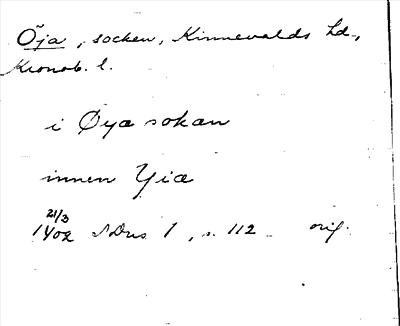 Öja, socken, Kinnevalds hd.,
Kronob. l.
i Øya sokan
innen Yia
21/3
1402 SDns 1, s. 112 orig.